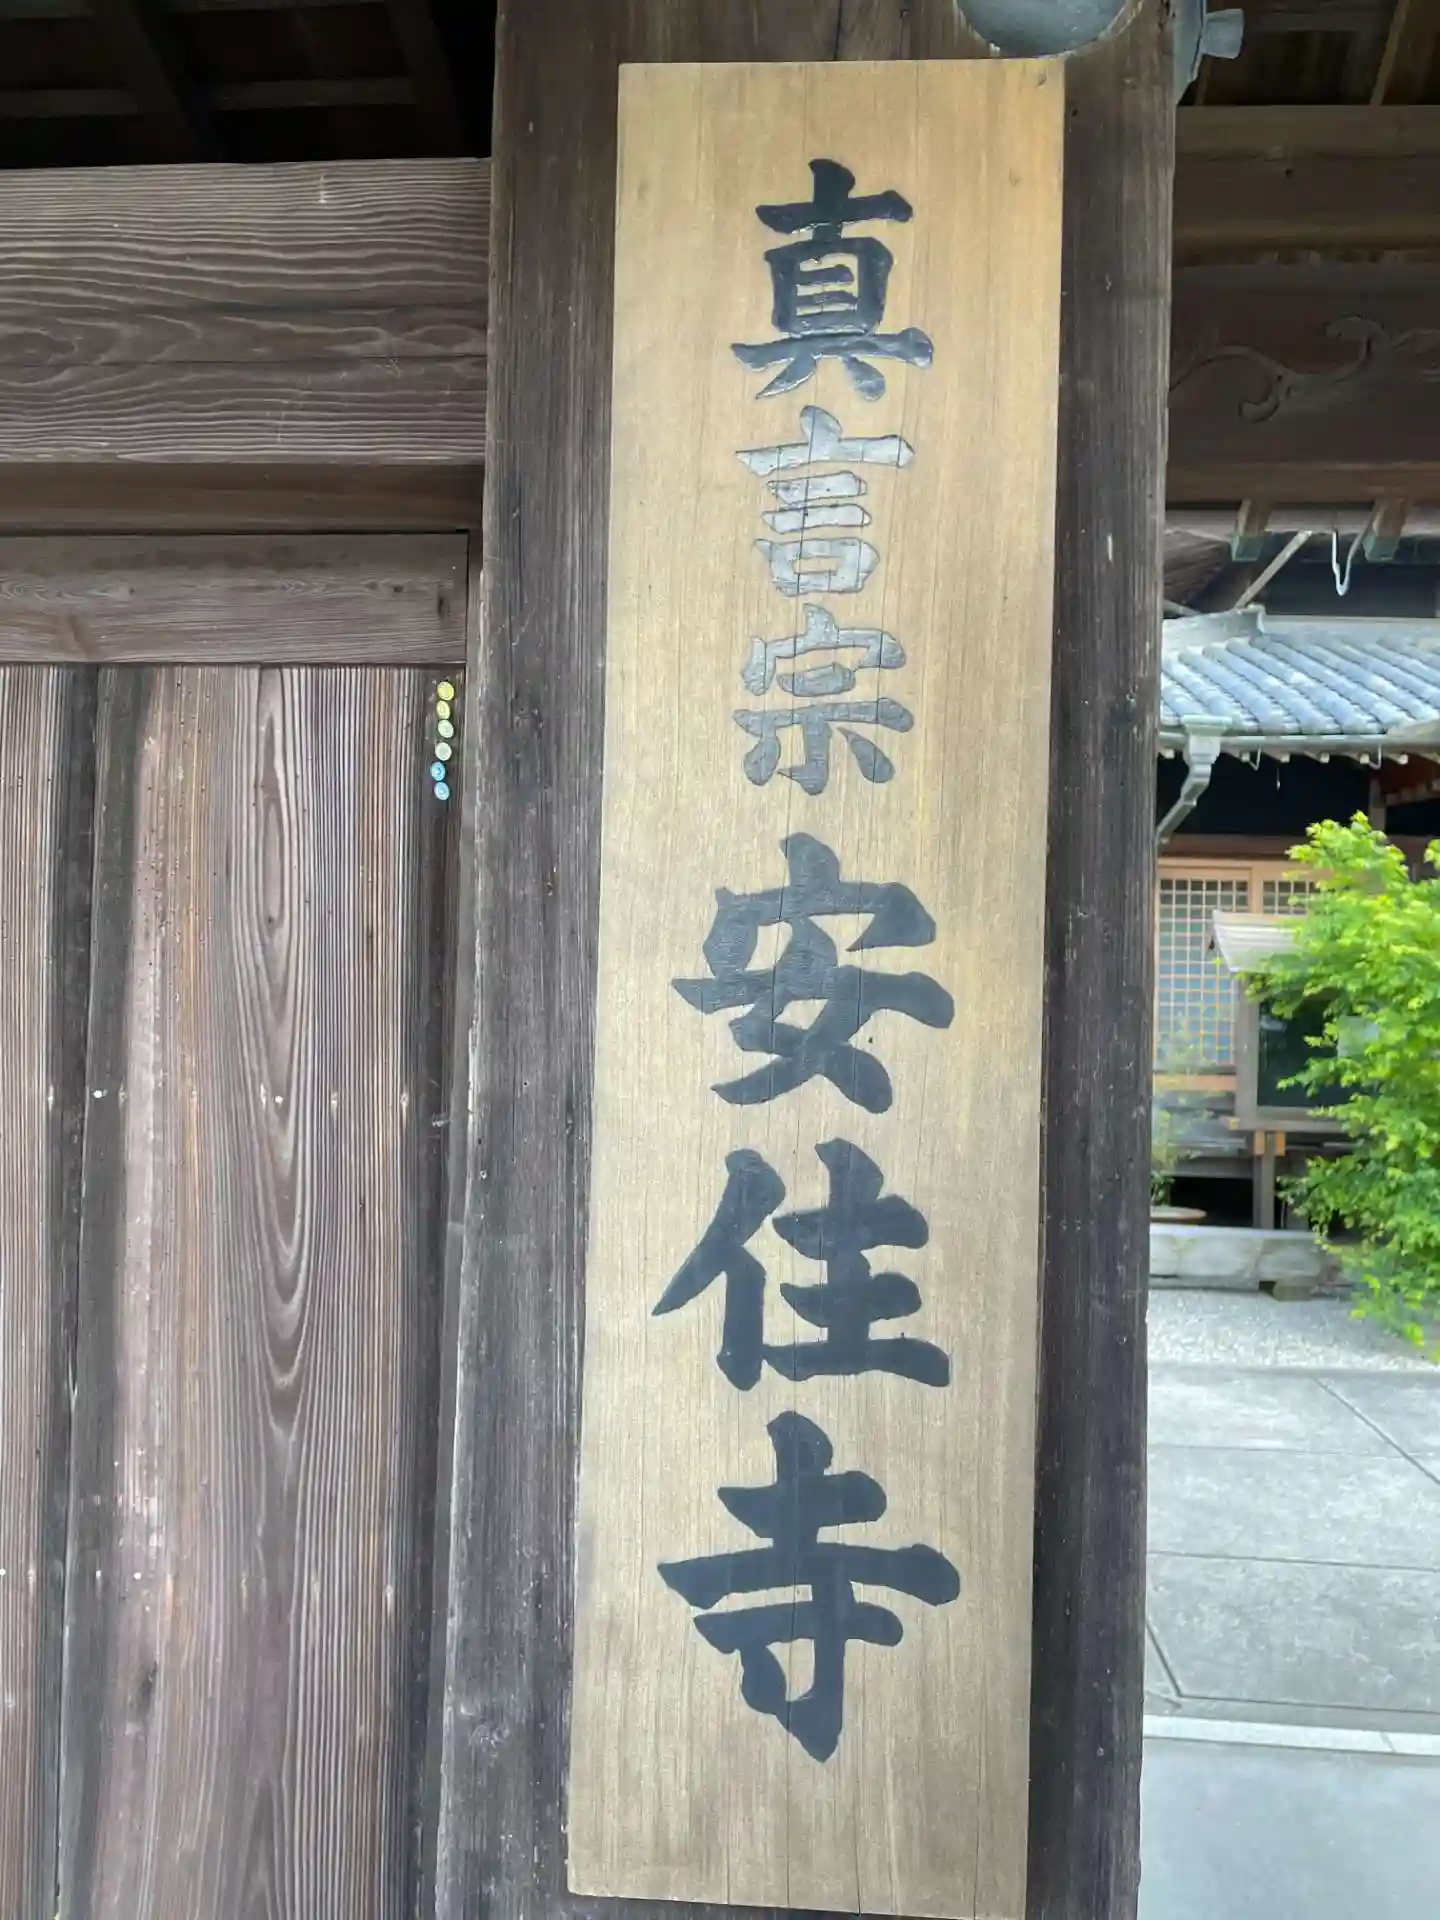 真言宗安住寺